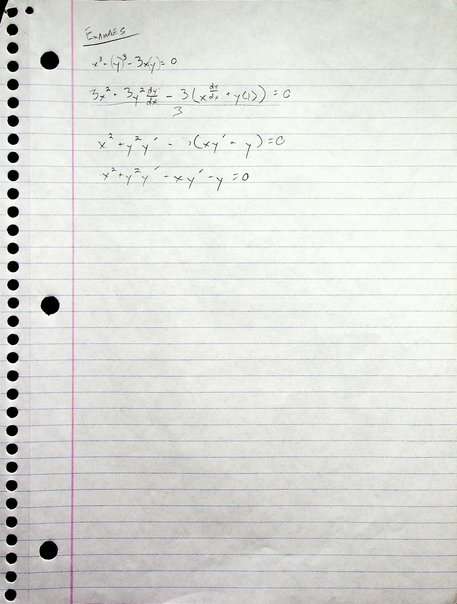 EXAMPLES
x³ + (y)³ - 3xy = 0
3x² + 3y² dy/dx - 3(x dy/dx + y(1)) = 0
3
x² + y²y′ - 1(xy′ + y) = 0
x² + y²y′ - xy′ - y = 0